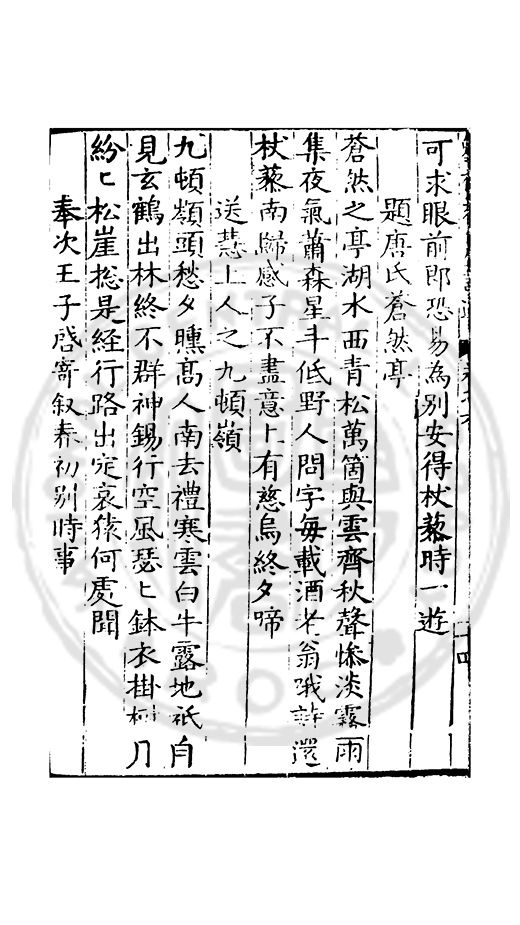 可求眼前即恐易為別安得杖藜時一遊
題唐氏蒼然亭
蒼然之亭湖水西青松萬箇與雲齊秋聲慘淡霧雨
集夜氣蕭森星斗低野人問字每載酒老翁哦詩還
杖藜南歸感子不盡意上有慈烏終夕啼
送慧上人之九頓嶺
九頓嶺頭愁夕曛髙人南去禮寒雲白牛露地祇自
見玄鶴出林終不群神錫行空風瑟匕鉢衣掛樹月
紛匕松崖揔是經行路出定哀猿何處聞
奉次王子啓寄叙春初别時事